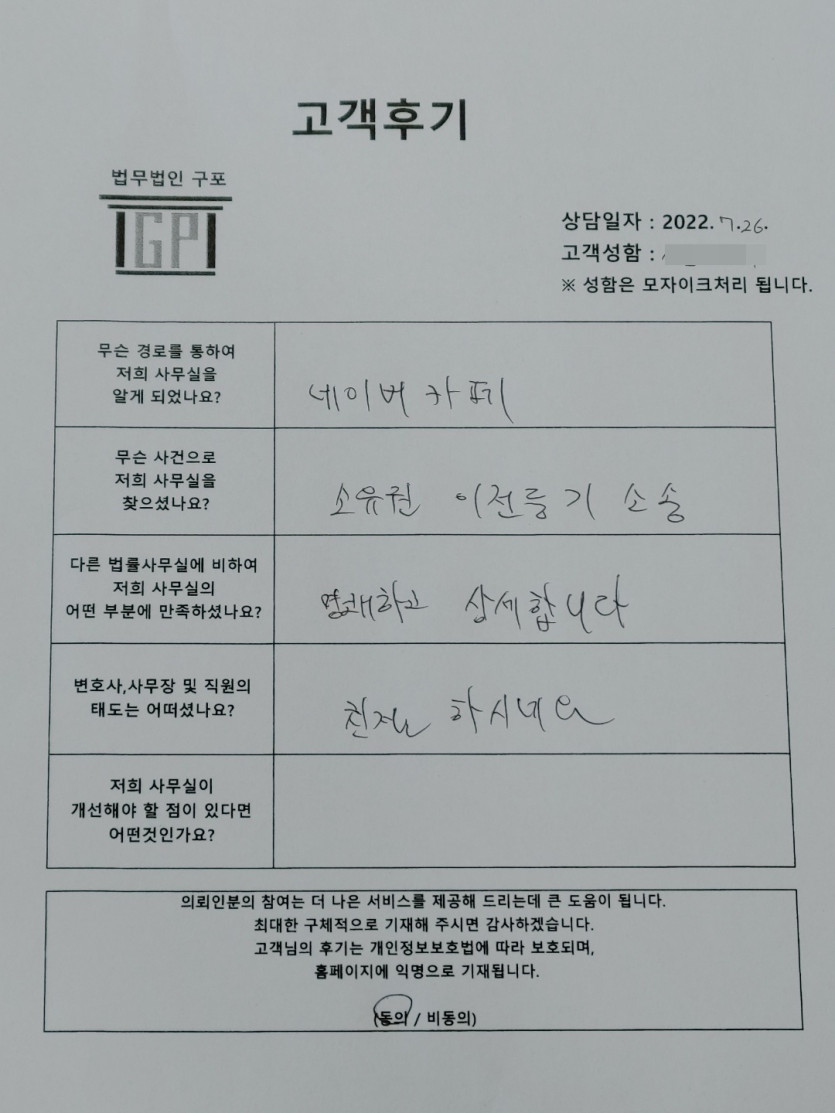 고객후기
법무법인 구포
IGPI
상담일자 : 2022. 7. 26.
고객성함 :
※ 성함은 모자이크처리 됩니다.
무슨 경로를 통하여
저희 사무실을
알게 되었나요?
네이버 카페
무슨 사건으로
저희 사무실을
찾으셨나요?
소유권 이전등기 소송
다른 법률사무실에 비하여
저희 사무실의
어떤 부분에 만족하셨나요?
명쾌하고 상세합니다
변호사,사무장 및 직원의
태도는 어떠셨나요?
친절 하시네요
저희 사무실이
개선해야 할 점이 있다면
어떤것인가요?
의뢰인분의 참여는 더 나은 서비스를 제공해 드리는데 큰 도움이 됩니다.
최대한 구체적으로 기재해 주시면 감사하겠습니다.
고객님의 후기는 개인정보보호법에 따라 보호되며,
홈페이지에 익명으로 기재됩니다.
(동의 / 비동의)